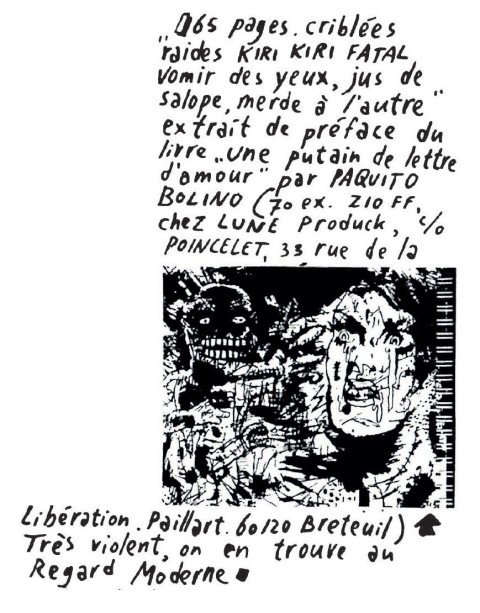 „065 pages. criblées
raides KIRI KIRI FATAL
vomir des yeux, jus de
salope, merde à l'autre"
extrait de préface du
livre „une putain de lettre
d'amour" par PAQUITO
BOLINO (70 ex. 210 FF.
chez LUNE Produck, c/o
POINCELET, 33 rue de la
Libération. Paillart. 60120 Breteuil)
Très violent, on en trouve au
Regard Moderne